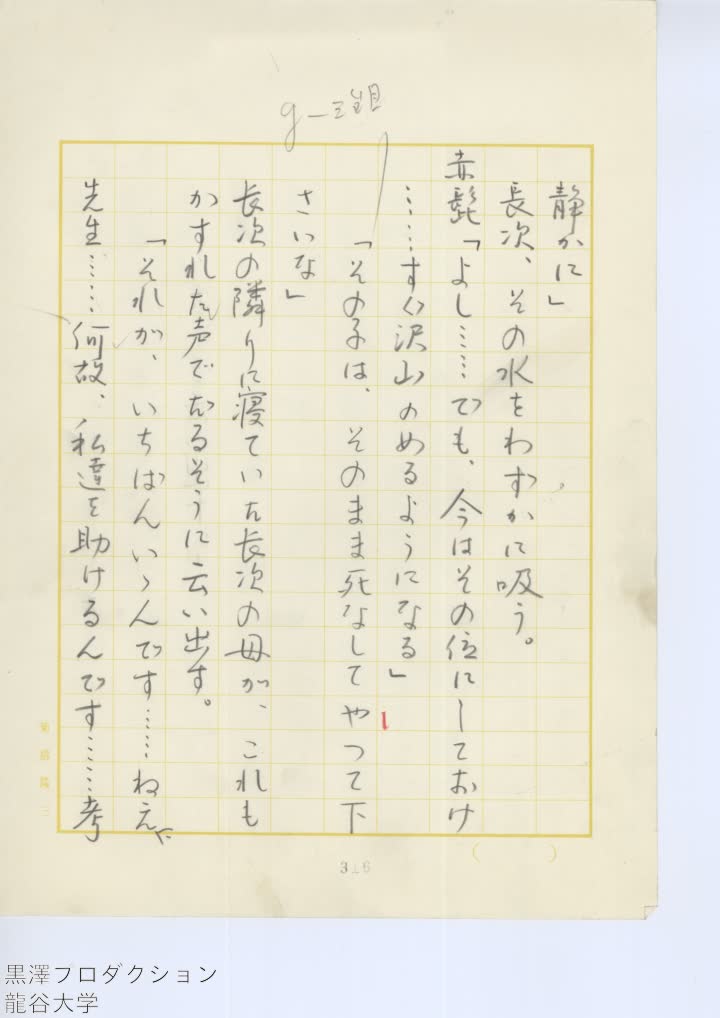 静かに」
長次、その水をわずかに吸う。
赤髭「よし……でも、今はその位にしておけ
……すぐ沢山のめるようになる」
「その子は、そのまま死なしてやって下
さいな」
長次の隣りに寝ていた長次の母が、これも
かすれた声でだるそうに云い出す。
「それが、いちばんいゝんです……ねえ
先生……何故、私達を助けるんです……考
菊島隆三
黒澤プロダクション
龍谷大学